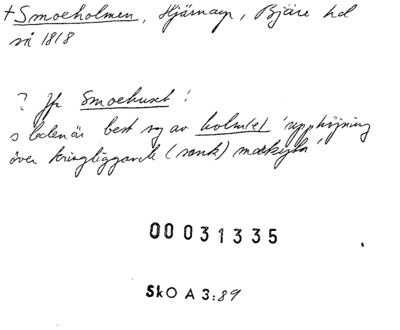 +Smoeholmen, Hjärnarp, Bjäre hd
så 1818
? Jfr Smoehuset!
s leden är best sg av holm(e) 'upphöjning
över kringliggande (sank) markyta'
00 031335
SkO A 3:89